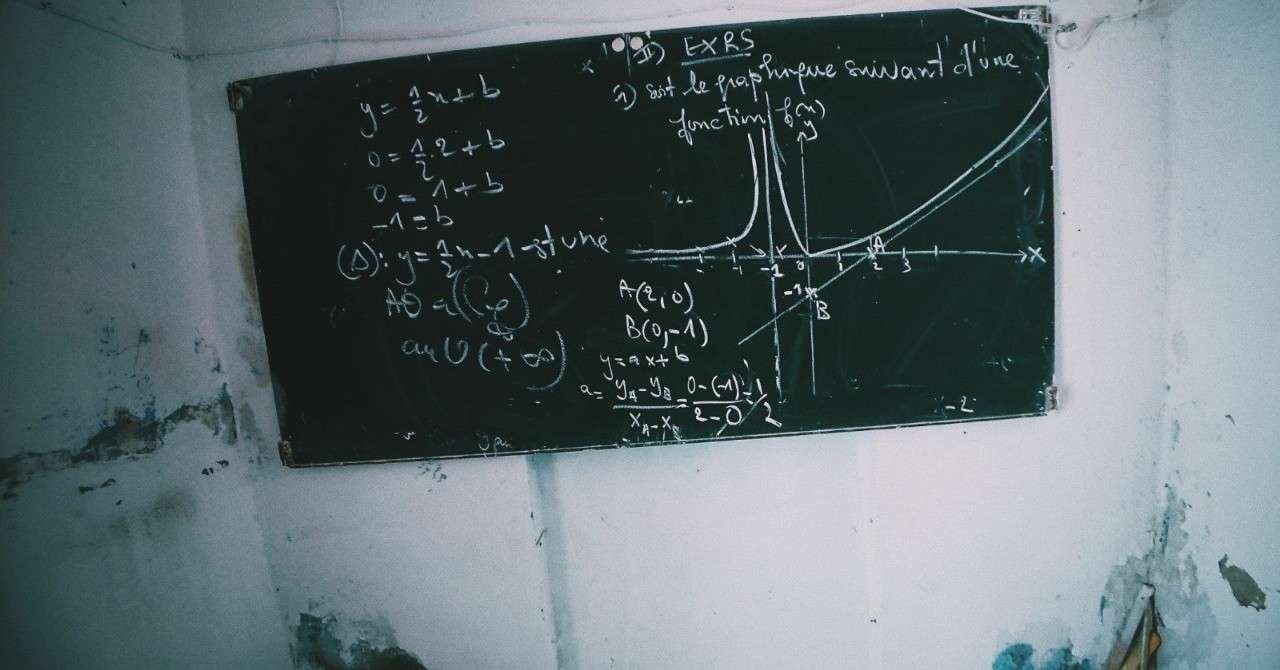 II) EXRS
1) soit le graphique suivant d'une
fonction f(x)
y = 1/2 x + b
0 = 1/2 . 2 + b
0 = 1 + b
-1 = b
(Δ): y = 1/2 x - 1 est une
AO à (Cf)
au V(+∞)
y
A
-1 0 2 3 X
-1
B
A(2,0)
B(0,-1)
y = ax + b
a = yA - yB / xA - xB = 0-(-1) / 2-0 = 1/2
-2